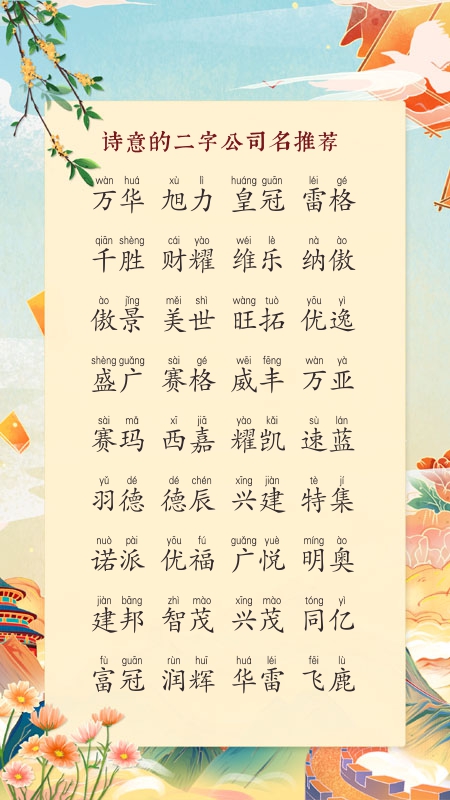 诗意的二字公司名推荐
wàn huá xù lì huáng guān léi gé
万华 旭力 皇冠 雷格
qiān shèng cái yào wéi lè nà ào
千胜 财耀 维乐 纳傲
ào jǐng měi shì wàng tuò yōu yì
傲景 美世 旺拓 优逸
shèng guǎng sài gé wēi fēng wàn yà
盛广 赛格 威丰 万亚
sài mǎ xī jiā yào kǎi sù lán
赛玛 西嘉 耀凯 速蓝
yǔ dé dé chén xīng jiàn tè jí
羽德 德辰 兴建 特集
nuò pài yōu fú guǎng yuè míng ào
诺派 优福 广悦 明奥
jiàn bāng zhì mào xīng mào tóng yì
建邦 智茂 兴茂 同亿
fù guān rùn huī huá léi fēi lù
富冠 润辉 华雷 飞鹿